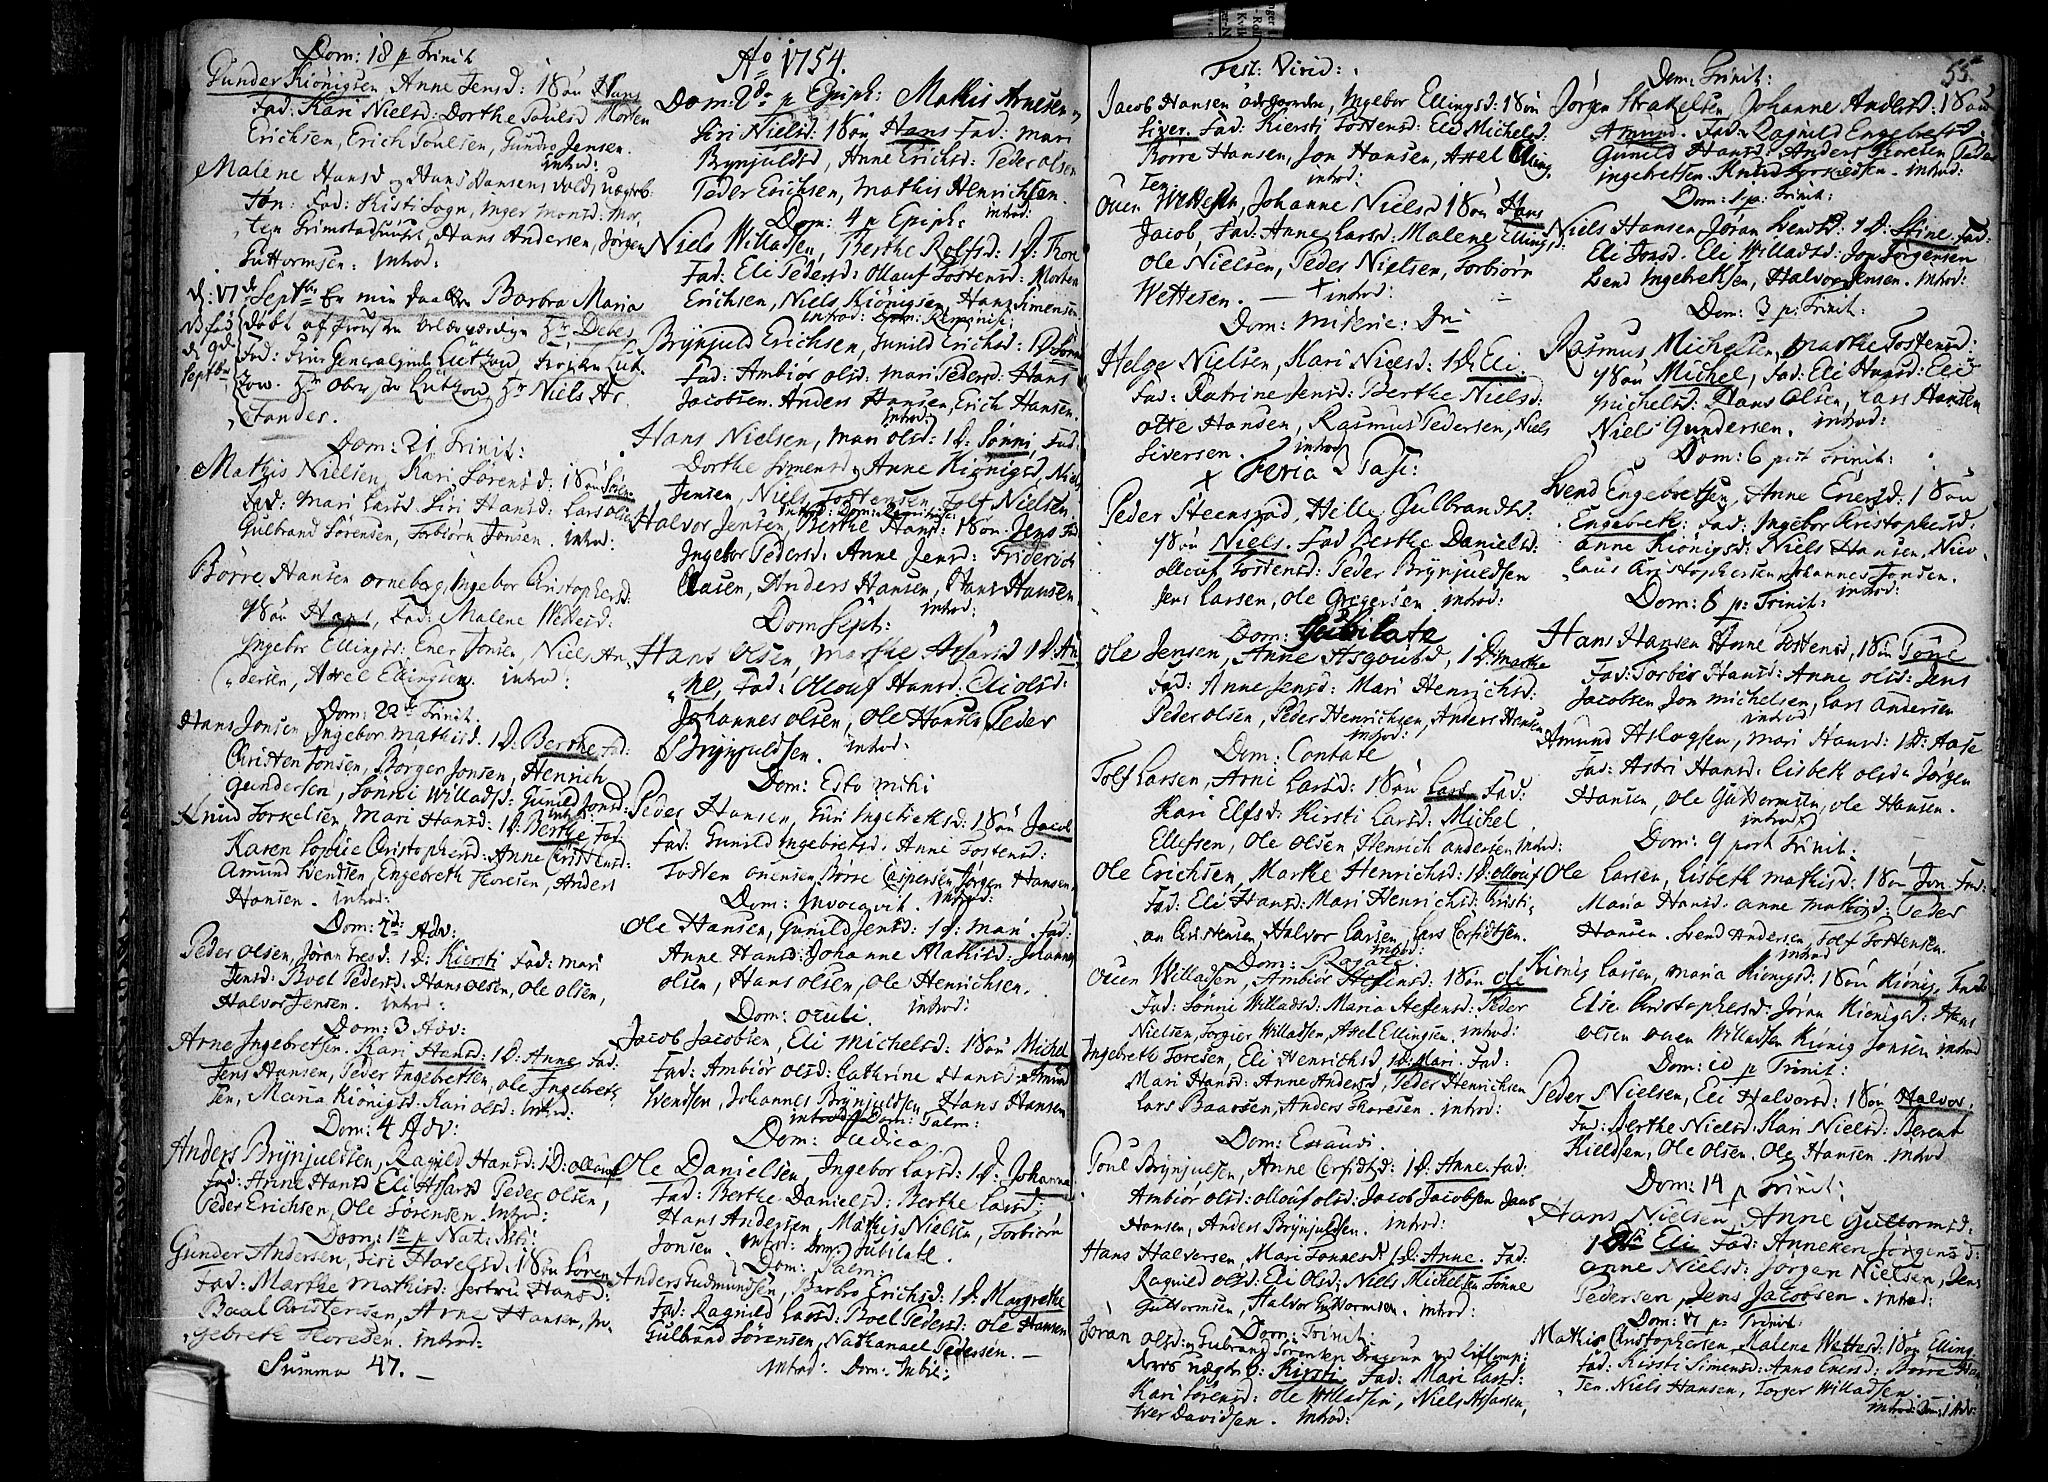 Dom: 18 p Trinit
Gunder Kiönigsen, Anne Jensd: 1 Søn Hans
Fad: Kari Nielsd: Dorthe Poulsd Morten
Erichsen, Erich Poulsen, Gundro Jensen.
introd:
Malene Hansd og Hans Hansens
Søn: Fad: Kisti Sogn, Inger Monsd: Mor,
ten Grimstad Hans Andersen, Jørgen
Guttormsen. introd:
d: 17de Septbr Er min daatter Barbra Maria
døbt af Hr: Debes
Fad: Frue Generalinde Lützow, Frøken Lüt,
zow. Hr Obrister Lützow, Hr Niels Ar
Dom: 21 Trinit:
Mathis Nielsen, Kari Sørensd: 1 Søn Søren
Fad: Mari Larsd. Siri Hansd: Lars Olsen
Gulbrand Sørensen, Torbiørn Jonsen. introd:
Børre Hansen Orneberg, Ingebor Christophersd:
1 Søn Hans, Fad: Malene Wettesd:
Ingebor Ellingsd: Ener Jonsen, Niels An,
dersen, Axel Ellingsen. introd:
Dom: 22 Trinit.
Hans Jonsen, Ingebor Mathisd. 1 D: Berthe Fad:
Christen Jonsen, Børger Jonsen, Henrich
Gundersen, Sønni Willadsd: Gunild Jonsd:
introd:
Knud Torkelsen, Mari Hansd: 1 D: Berthe Fad:
Karen Sophie Christophersd. Anne Christensd:
Amund Svendsen, Engebreth Thoresen, Anders
Hansen. introd:
Dom: 2d: Adv:
Peder Olsen, Jøran Iresd: 1 D: Kiersti Fad: Mari
Jensd: Boel Pedersd. Hans Olsen, Ole Olsen,
Halvor Jensen. introd:
Dom: 3 Adv:
Arne Ingebretsen. Kari Hansd: 1 D: Anne Fad:
Jens Hansen, Peder Ingebretsen, Ole Ingebreth
sen, Maria Kiönigsd. Kari Olsd: introd:
Dom: 4 Adv:
Anders Brynjuldsen, Ragnild Hansd: 1 D: Ollouf
Fad: Anne Hansd Eli Assarsd Peder Olsen,
Peder Erichsen, Ole Sørensen. introd:
Dom: 1ste p Nat:
Gunder Andersen, Siri Havelsd: 1 Søn Søren
Fad: Marthe Mathisd: Jertru Hansd:
Baal Christensen, Arne Hansen, In,
gebreth Thoresen. introd:
Summa 47. —
Ao 1754.
Dom: 2do p Epiph: Mathis Arnesen,
Siri Nielsd: 1 Søn Hans Fad: Mari
Brynjuldsd, Anne Erichsd: Peder Olsen
Peder Erichsen, Mathis Henrichsen.
introd:
Dom: 4 p Epiph:
Niels Willadsen, Berthe Rolfsd: 1 D: Thore
Fad: Eli Pedersd: Ollouf Tostensd: Morten
Erichsen, Niels Kiönigsen, Hans Simensen
introd: Dom: Reminise:
Brynjuld Erichsen, Gunild Erichsd: 1 D: Søren
Fad: Ambiør Olsd: Mari Pedersd: Hans
Jacobsen. Anders Hansen, Erich Hansen.
introd:
Hans Nielsen, Mari Olsd: 1 D: Sønni, Fad:
Dorthe Simensd, Anne Kiönigsd, Niels
Jensen, Niels Tostensen, Tolf Nielsen.
introd: Dom: Reminise:
Halvor Jensen, Berthe Hansd: 1 Søn Jens Fad
Ingebor Pedersd: Anne Jensd: Friderich
Clausen, Anders Hansen, Hans Hansen,
introd:
Dom Sept:
Hans Olsen, Marthe Assarsd 1 D: An,
ne, Fad: Ollouf Hansd. Eli Olsd:
Johannes Olsen, Ole Hansen Peder
Brynjuldsen. introd:
Dom: Esto mihi
Peder Hansen, Guri Ingebretsd: 1 Søn Jacob
Fad: Gunild Ingebretsd. Anne Tostensd:
Tosten Ouensen, Børre Caspersen, Jørgen Hansen.
introd:
Dom: Invocavit.
Ole Hansen, Gunild Jensd: 1 D: Mari. Fad:
Anne Hansd: Johanne Mathisd: Johannes
Olsen, Hans Olsen, Ole Henrichsen.
introd:
Dom: Oculi.
Jacob Jacobsen, Eli Michelsd: 1 Søn Michel
Fad: Ambiør Olsd: Cathrine Hansd: Amund
Svendsen, Johannes Brynjuldsen, Hans Hansen
introd: Dom: Palm:
Dom: Judica
Ole Danielsen, Ingebor Larsd: 1 D: Johanna
Fad: Berthe Danielsd: Berthe Larsd:
Hans Andersen, Mathis Nielsen, Torbiørn
Jonsen. introd: Dom: Jubilate.
Dom: Palm:
Anders Gudmundsen, Barbro Erichsd: 1 D: Margrethe
Fad: Ragnild Larsd: Boel Pedersd: Ole Hansen
Gulbrand Sørensen, Nathanael Pedersen. —
introd: Dom: Jubil:
Fest: Virid:
Jacob Hansen Ødegaarden, Ingebor Ellingsd: 1 Søn
Siver. Fad: Kiersti Tostensd: Eli Michelsd:
Børre Hansen, Jon Hansen, Axel Elling,
sen
introd:
Ouen Wettesen, Johanne Nielsd 1 Søn Hans
Jacob, Fad: Anne Larsd: Malene Ellingsd:
Ole Nielsen, Peder Nielsen, Torbiørn
Wettesen. — introd:
Dom: Miserie: Dni
Helge Nielsen, Kari Nielsd: 1 D: Eli.
Fad: Katrine Jensd: Berthe Nielsd:
Otte Hansen, Rasmus Pedersen, Niels
Siversen. introd:
Feria 2 Pasc:
Peder Steensrød, Helle Gulbrandsd:
1 Søn Niels. Fad Berthe Danielsd:
Ollouf Tostensd: Peder Brynjuldsen
Jens Larsen, Ole Gregersen. introd:
Dom: Jubilate
Ole Jensen, Anne Asgoutsd, 1 D: Marthe
Fad: Anne Jensd: Mari Henrichsd:
Peder Olsen, Peder Henrichsen, Anders Hansen
introd:
Dom: Contate
Tolf Larsen, Arne Larsd: 1 Søn Lars Fad:
Kari Elfsd: Kirsti Larsd: Michel
Ellefsen, Ole Olsen, Henrich Andersen introd:
Ole Erichsen, Marthe Henrichsd: 1 D: Ollouf
Fad: Eli Hansd: Mari Henrichsd: Kristi,
an Christensen, Halvor Larsen, Lars Corfidtsen.
introd:
Dom: Rogate
Ouen Willadsen, Ambiør Stefensd: 1 Søn Ole
Fad: Sønni Willadsd: Maria Stefensd: Peder
Nielsen, Torgier Willadsen, Axel Ellingsen. introd:
Ingebreth Toresen, Eli Henrichsd, 1 D: Mari. Fad:
Mari Hansd: Anne Andersd, Peder Henrichsen
Lars Baarsen, Anders Thoresen. introd:
Dom: Exaudi.
Poul Brynjulsen, Anne Corfidtsd: 1 D: Anne. Fad:
Ambiør Olsd: Ollouf Olsd: Jacob Jacobsen Jacob
Hansen, Anders Brynjuldsen. introd:
Hans Halvorsen, Mari Tønnesd 1 D: Anne. Fad:
Ragnild Olsd: Eli Olsd: Niels Michelsen Tønne
Guttormsen, Halvor Guttormsen. introd:
Dom: Trinit:
Jøran Olsd, Gulbrand Sørensen Dragoun
D: Kirsti. Fad: Mari Larsd:
Kari Sørensd: Ole Willadsen, Niels Assarsen,
Iver Davidsen. introd:
55.
Dom: Trinit:
Jørgen Strakelsen, Johanne Andersd: 1 Søn
Amund. Fad: Ragnild Engebretsd:
Gunild Hansd: Anders Thoresen Peder
Ingebretsen. Knud Torkildsen. introd:
Dom: 1 p: Trinit:
Niels Hansen Jøran Svendsd: 1 D: Stine. Fad:
Eli Jonsd. Eli Willadsd: Jon Jørgensen
Svend Ingebretsen, Halvor Jensen. introd:
Dom: 3 p: Trinit:
Rasmus Michelsen, Marthe Tostensd:
1 Søn Michel, Fad: Eli Hansd: Eli
Michelsd: Hans Olsen, Lars Hansen
Niels Gundersen. introd:
Dom: 6 post Trinit:
Svend Engebretsen, Anne Enersd: 1 Søn
Engebreth: Fad: Ingebor Christophersd:
Anne Kiönigsd: Niels Hansen, Nico,
laus Christophersen, Johannes Jonsen.
introd:
Dom: 8 p: Trinit:
Hans Hansen Anne Tostensd, 1 Søn Tønne
Fad: Torbiør Hansd: Anne Olsd: Jens
Jacobsen Jon Michelsen, Lars Andersen
introd:
Amund Aslagsen, Mari Hansd: 1 D: Aase
Fad: Astri Hansd: Lisbeth Olsd: Jørgen
Hansen, Ole Guttormsen, Ole Hansen.
introd:
Dom: 9 post Trinit:
Ole Larsen, Lisbeth Mathisd: 1 Søn Jon Fad:
Maria Hansd. Anne Mathisd: Peder
Hansen. Svend Andersen, Tolf Tostensen.
introd
Kiönig Larsen, Maria Kiönigsd: 1 Søn Kiönig. Fad:
Else Christophersd: Jøran Kiönigsd: Hans
Olsen Ouen Willadsen Kiönig Jonsen introd
Dom: 10 p Trinit:
Peder Nielsen, Eli Halvorsd: 1 Søn Halvor,
Fad: Berthe Nielsd: Kari Nielsd: Berent
Kieldsen, Ole Olsen. Ole Hansen. introd
Dom: 14 p Trinit:
Hans Nielsen, Anne Guttormsd:
1 Eli Fad: Anneken Jørgensd:
Anne Nielsd: Jørgen Nielsen, Jens
Pedersen, Jens Jacobsen. introd
Dom: 17 p: Trinit:
Mathis Christophersen, Malene Wettesd: 1 Søn Elling
Fad: Kirsti Simensd: Anna Enersd: Børre Han,
sen. Niels Hansen, Torger Willadsen.
introd: Dom: 1 Adv: